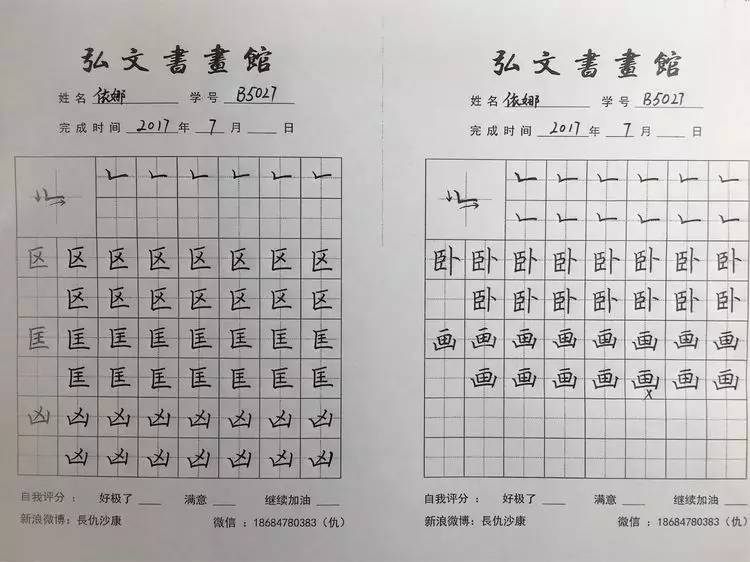 弘文書畫館
姓名 依娜 学号 B5027
完成时间 2017 年 7 月 日
𠃊 𠃊 𠃊 𠃊 𠃊 𠃊
区 区 区 区 区 区 区 区
区 区 区 区 区 区 区
匡 匡 匡 匡 匡 匡 匡 匡
匡 匡 匡 匡 匡 匡 匡
凶 凶 凶 凶 凶 凶 凶 凶
凶 凶 凶 凶 凶 凶 凶
自我评分： 好极了 满意 继续加油
新浪微博：長仇沙康 微信：18684780383（仇）
弘文書畫館
姓名 依娜 学号 B5027
完成时间 2017 年 7 月 日
𠃊 𠃊 𠃊 𠃊 𠃊 𠃊
𠃊 𠃊 𠃊 𠃊 𠃊 𠃊
卧 卧 卧 卧 卧 卧 卧 卧
卧 卧 卧 卧 卧 卧 卧
画 画 画 画 画 画 画 画
画 画 画 画 画 画 画
x
自我评分： 好极了 满意 继续加油
新浪微博：長仇沙康 微信：18684780383（仇）